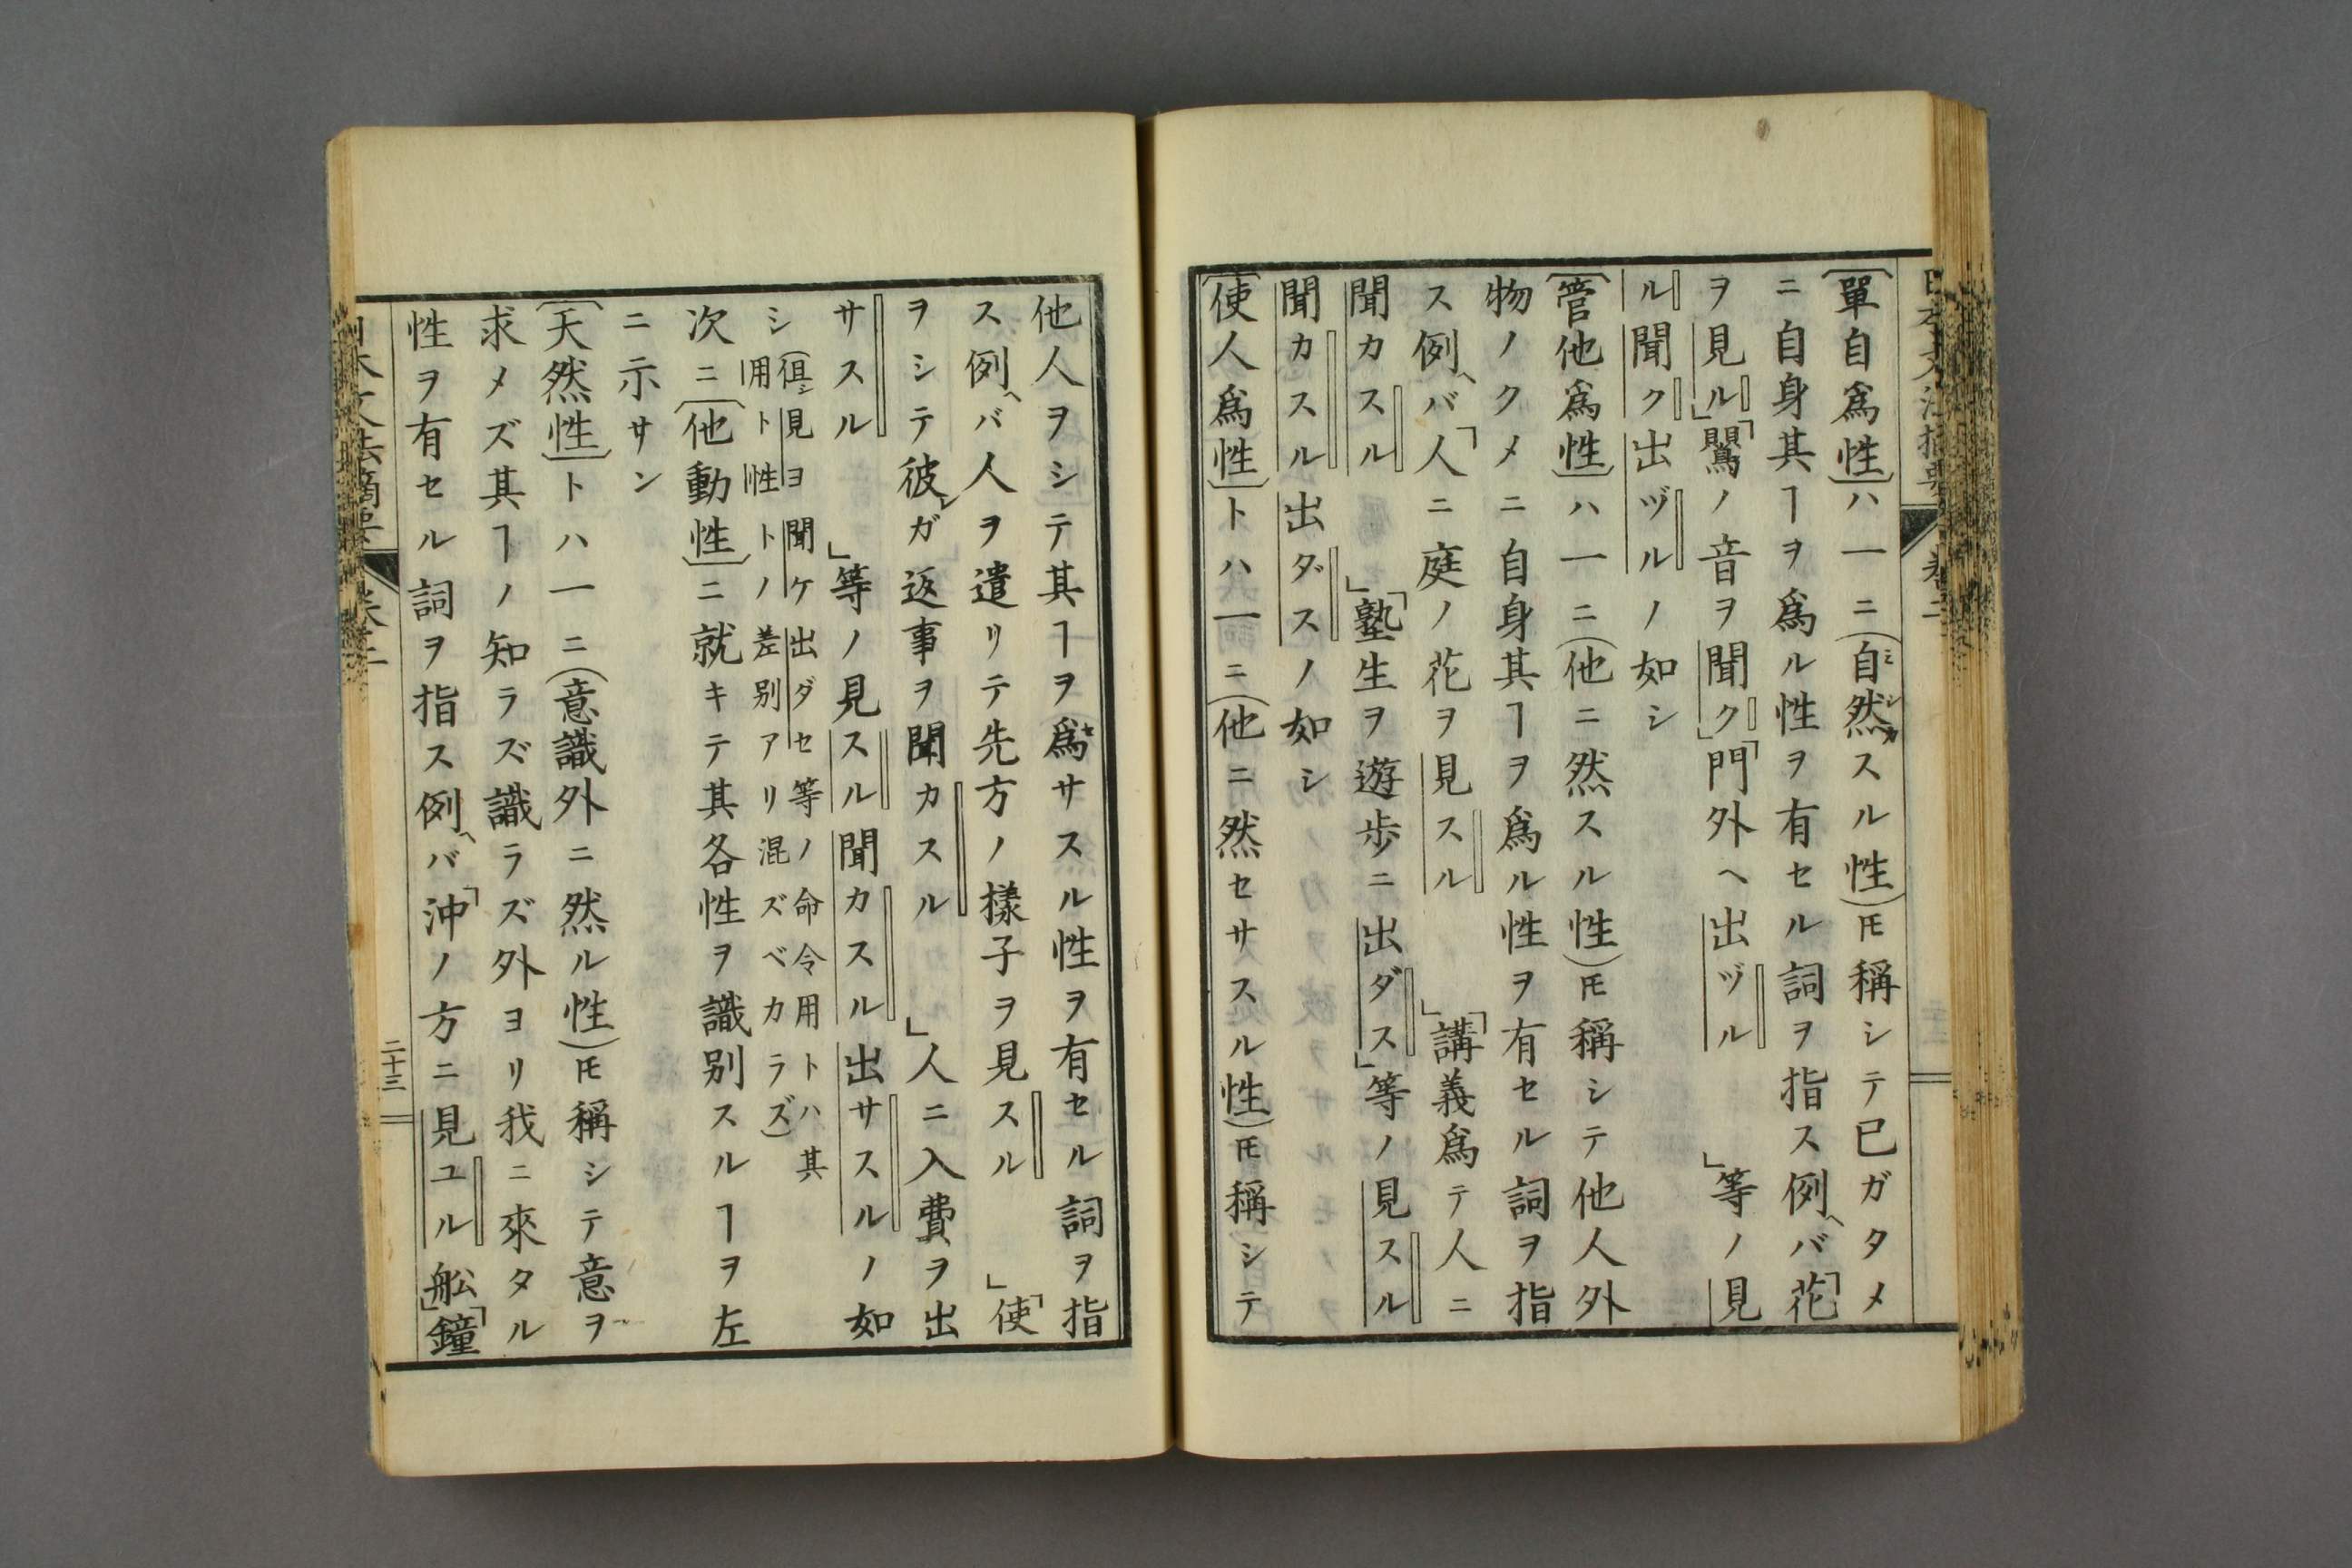 〔單自爲性〕ハ一ニ(自然スル性)𪜈稱シテ已ガタメ
ニ自身其ヿヲ爲ル性ヲ有セル詞ヲ指ス例ヘバ「花
ヲ見ル」「鶯ノ音ヲ聞ク」「門外ヘ出ヅル」等ノ見
ル聞ク出ヅルノ如シ
〔管他爲性〕ハ一ニ(他ニ然スル性)𪜈稱シテ他人外
物ノクメニ自身其ヿヲ爲ル性ヲ有セル詞ヲ指
ス例ヘバ「人ニ庭ノ花ヲ見スル」「講義爲テ人ニ
聞カスル」「塾生ヲ遊歩ニ出ダス」等ノ見スル
聞カスル出ダスノ如シ
〔使人爲性〕トハ一ニ(他ニ然セサスル性)𪜈稱シテ
他人ヲシテ其ヿヲ爲サスル性ヲ有セル詞ヲ指
ス例ヘバ人ヲ遣リテ先方ノ樣子ヲ見スル」「使
ヲシテ彼レガ返事ヲ聞カスル」人ニ入費ヲ出
サスル」等ノ見スル聞カスル出サスルノ如
シ(但シ見ヨ聞ケ出ダセ等ノ命令用トハ其
用ト性トノ差別アリ混ズベカラズ)
次ニ〔他動性〕ニ就キテ其各性ヲ識別スルヿヲ左
ニ示サン
〔天然性〕トハ一ニ(意識外ニ然ル性)𪜈稱シテ意ヲ
求メズ其ヿノ知ラズ識ラズ外ヨリ我ニ來タル
性ヲ有セル詞ヲ指ス例ヘバ「沖ノ方ニ見ユル舩」「鐘
日本文法摘要
卷二
二十三